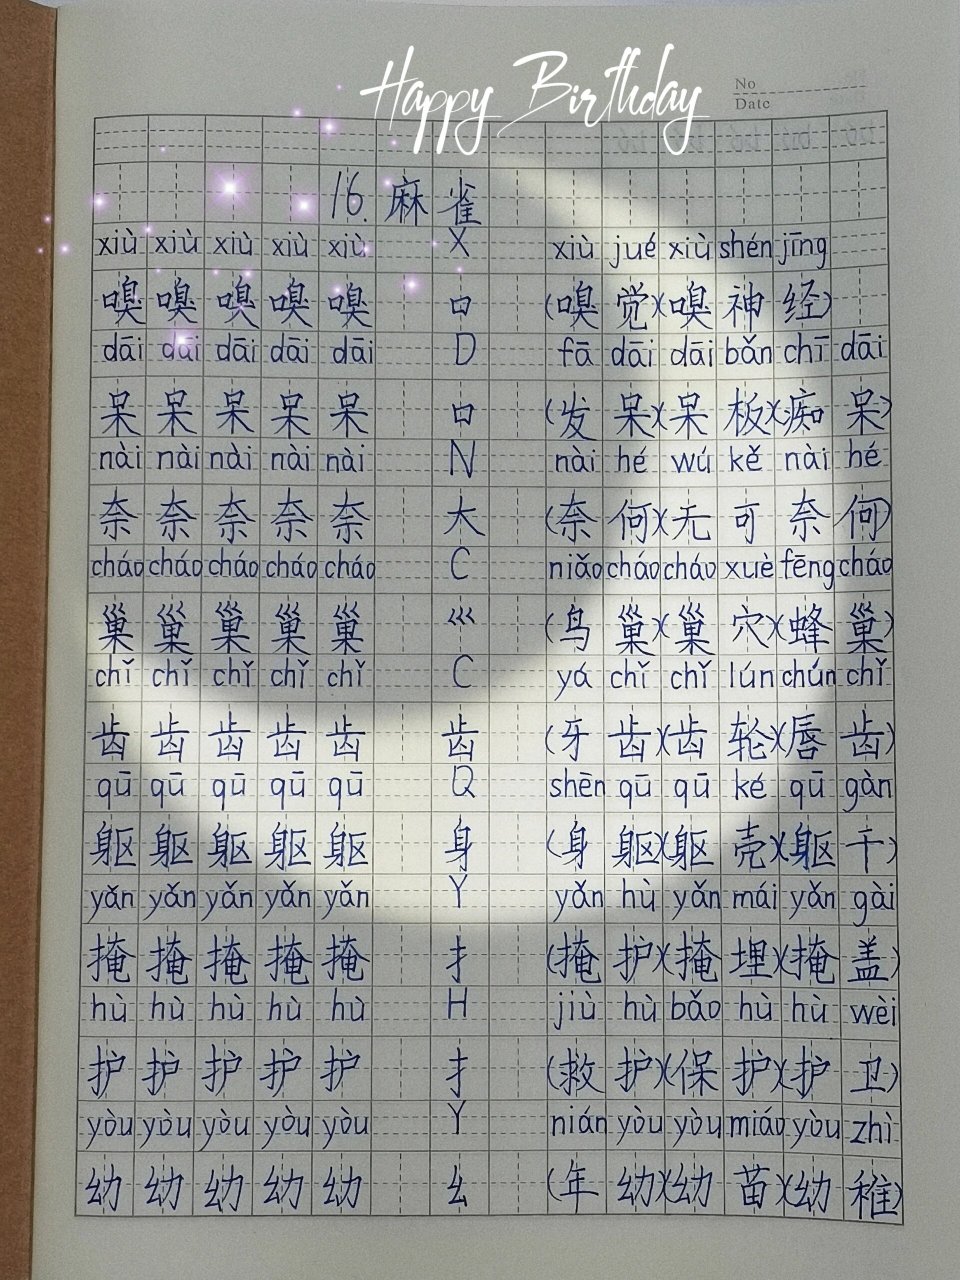 Happy Birthday
No
Date
16. 麻雀
xiù xiù xiù xiù xiù X xiù jué xiù shén jīng
嗅 嗅 嗅 嗅 嗅 口 (嗅觉)(嗅神经)
dāi dāi dāi dāi dāi D fā dāi dāi bǎn chī dāi
呆 呆 呆 呆 呆 口 (发呆)(呆板)(痴呆)
nài nài nài nài nài N nài hé wú kě nài hé
奈 奈 奈 奈 奈 大 (奈何)(无可奈何)
cháo cháo cháo cháo cháo C niǎo cháo cháo xuè fēng cháo
巢 巢 巢 巢 巢 巛 (鸟巢)(巢穴)(蜂巢)
chǐ chǐ chǐ chǐ chǐ C yá chǐ chǐ lún chún chǐ
齿 齿 齿 齿 齿 齿 (牙齿)(齿轮)(唇齿)
qū qū qū qū qū Q shēn qū qū ké qū gàn
躯 躯 躯 躯 躯 身 (身躯)(躯壳)(躯干)
yǎn yǎn yǎn yǎn yǎn Y yǎn hù yǎn mái yǎn gài
掩 掩 掩 掩 掩 扌 (掩护)(掩埋)(掩盖)
hù hù hù hù hù H jiù hù bǎo hù hù wèi
护 护 护 护 护 扌 (救护)(保护)(护卫)
yòu yòu yòu yòu yòu Y nián yòu yòu miáo yòu zhì
幼 幼 幼 幼 幼 幺 (年幼)(幼苗)(幼稚)